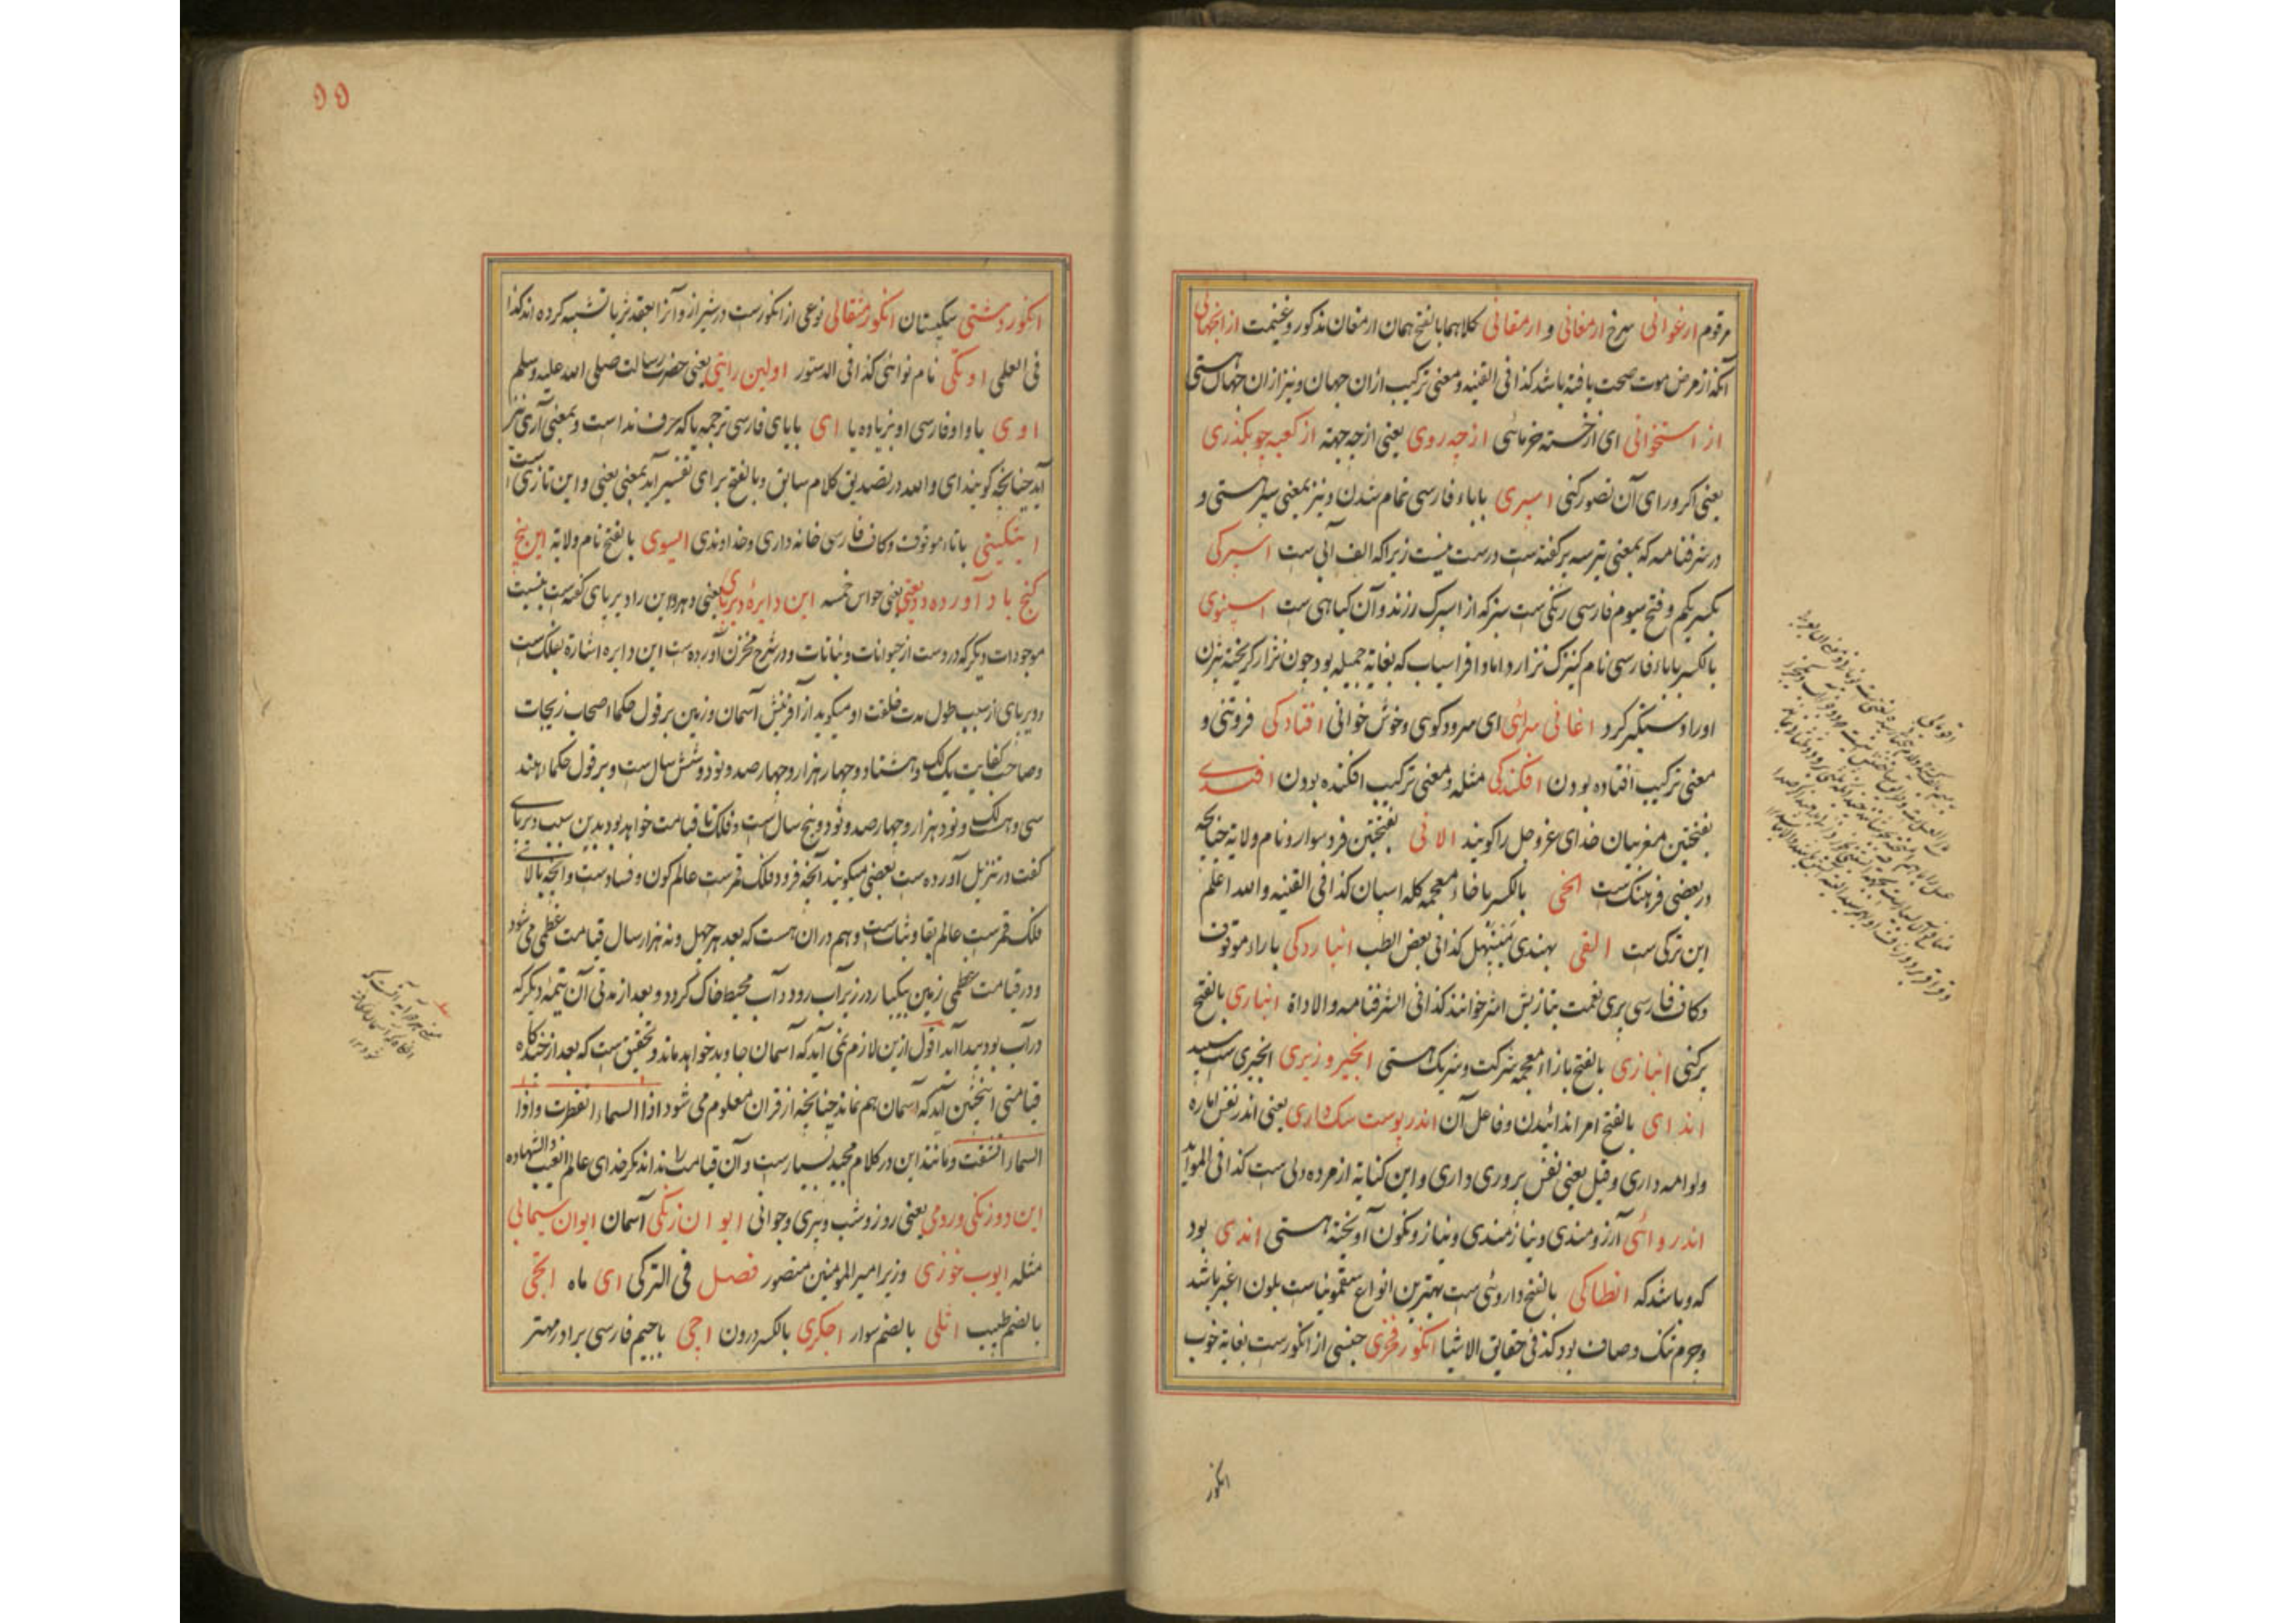 مرقوم ارغوانی سرخ ارمغانی و ارمقانی کلاهما بالفتح همان ارمغان مذکور و غنیمت از انجهانی
آنکه از مرض موت صحت یافته باشد کذا فی القنیه و معنی ترکیب ازان جهان و نیز ازان جهان هستی
از استخوانی ای از خسته خرمائی از چه روی یعنی از چه جهة از کعبه چو بگذری
یعنی اگر ورای آن تصور کنی اسپری با باء فارسی تمام شدن و نیز بمعنی سپر هستی و
در شرفنامه که بمعنی بترسه بر گفته است درست نیست زیرا که الف آبی ست اسپرکی
بکسر یکم و فتح سیوم فارسی رنگی ست سبز که از اسپرک رزند و آن کیاهی ست اسپنوی
بالکسر با باء فارسی نام کنیزک تزار و اماد افراسیاب که بغایة جمیله بود چون تزار گریخته بیژن
اورا دستگیر کرد اغانی سرائی ای سرود کوی و خوش خوانی افتادکی فروتنی و
معنی ترکیب افتاده بودن افکندکی مثله و معنی ترکیب افکنده بودن افندی
بفتحتین مغربیان خدای عز و جل را کویند الانی بفتحتین فرد سوار و نام ولایة چنانچه
در بعضی فرهنک ست الخی بالکسر با خاء معجمه کله اسپان کذا فی القنیه و الله اعلم
این ترکی ست القی بهندی کذا فی بعض الطب انباردکی با راء موقوف
و کاف فارسی پری نعمت بتازیش اشر خوانند کذا فی الشرفنامه و الاداة انباری بالفتح
پر کنی انبازی بالفتح با زاء معجمه شرکت و شریک هستی انجیر وزیری انجیری ست سپید
اندای بالفتح امر اندائیدن و فاعل آن اندر پوست سک داری یعنی اندر نفس اماره
و لوامه داری و قیل یعنی نفس پروری داری و این کنایة از مرده دلی ست کذا فی الموائد
اندروائی آرزومندی و نیازمندی و نیاز و نکون آویخته هستی اندی بود
که و باشد که انطاکی بالفتح داروئی ست بهترین انواع سقمونیاست بلون اغبر باشد
و جرم تنک و صاف بود کذا فی حقایق الاشیا انکور فخری جنسی از انکورست بغایة خوب
انکور
۵۵
انکور دشتی سکپستان انکور مثقالی نوعی از انکورست در شیراز و آنرا بعقد ثریا تشبیه کرده اند کذا
فی العلمی اوتکی نام نوائی کذا فی الدستور اولین رایتی یعنی حضرت رسالت صلی الله علیه وسلم
اوی با واو فارسی او بزیاده یا ای با یای فارسی ترجمه یا که حرف نداست و بمعنی آری نیز
آید چنانچه کویند ای و الله در تصدیق کلام سابق و بالفتح برای تفسیر آید بمعنی یعنی و این تازی ست
ایتکینی با تاء موقوف و کاف فارسی خانه داری و خداوندی ایسوی بالفتح نام ولایة این پنج
کنج باد آورده یعنی حواس خمسه این دایره دیرپای یعنی دهر و این را دیرپای گفته ست بنسبت
موجودات دیکر که دروست از حیوانات و نباتات و در شرح مخزن آورده ست این دایره اشارة بفلک ست
و دیرپای از سبب طول مدت خلقت او میکوید از آفرینش آسمان و زمین بر قول حکما اصحاب زیجات
و صاحب کفایت یک لک و هشتاد و چهار هزار و چهار صد و نود و شش سال ست و بر قول حکماء هند
سی و هر لک و نود هزار و چهار صد و نود و پنج سال ست و فلک تا قیامت خواهد بود بدین سبب دیرپای
گفت در تنزیل آورده ست بعضی میکویند آنچه فرود فلک قمرست عالم کون و فسادست و آنچه بالای
فلک قمرست عالم بقا و ثبات ست و هم دران هست که بعد هر چهل و نه هزار سال قیامت عظمی می شود
و در قیامت عظمی زمین یکبار در زیر آب رود و آب محیط خاک گردد و بعد از مدتی آن نیمه دیکر که
در آب بود پیدا آید اقول ازین لازم نمی آید که آسمان جاوید خواهد ماند و تحقیق ست که بعد از چندکاه
قیامتی اینچنین آید که آسمان هم نماند چنانچه از قرآن معلوم می شود اذا السماء انفطرت و اذا
السماء انشقت و مانند این در کلام مجید بسیارست و آن قیامت را نداند مکر خدای عالم الغیب و الشهاده
این دو زنکی و رومی یعنی روز و شب و پیری و جوانی ایوان زنکی آسمان ایوان سیمابی
مثله ایوب خوزی وزیر امیر المومنین منصور فصل فی الترکی ای ماه ایچی
بالضم طبیب اتلی بالضم سوار اجکری بالکسر درون اچی با جیم فارسی برادر مهتر